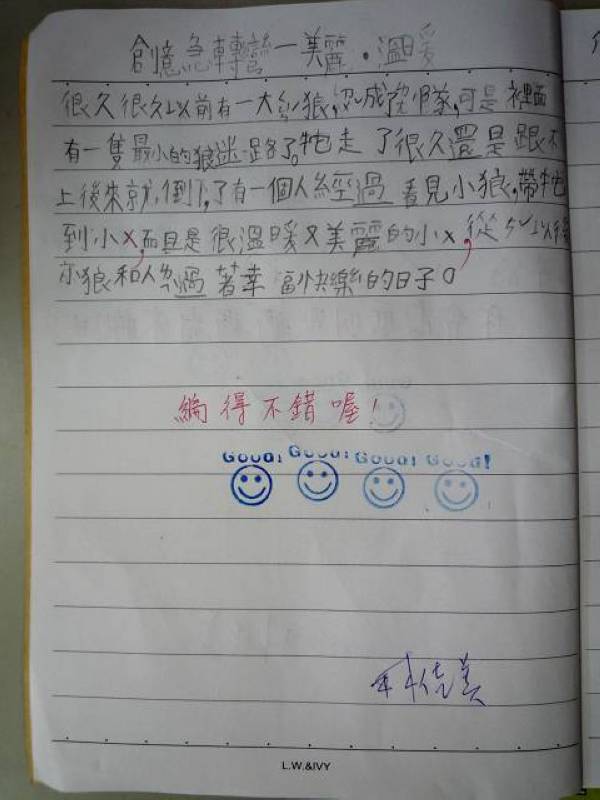 創意急轉彎—美麗.溫暖
很久很久以前有一大郡狼,認成隊,可是裡面
有一隻最小的狼迷路了。牠走了很久還是跟不
上後來就倒了有一個人經過看見小狼,帶牠
到小x,而且是很溫暖又美麗的小x,從以後
小狼和人過著幸福快樂的日子。
編得不錯喔!
Good! Good! Good! Good!
L.W.&IVY